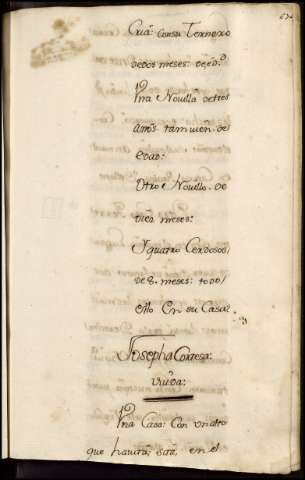 Cria: Con su Ternero
de dos meses: de ed.ᵈ
Yna Novilla de tres
años tamvien de
edad:
Otro Novillo de
diez meses:
Y quatro Cerdosos,
de 8. meses: todo
ello En su Casa:
Josepha
Viuda:
Yna Casa: Con un alto
que havita: sita, en el